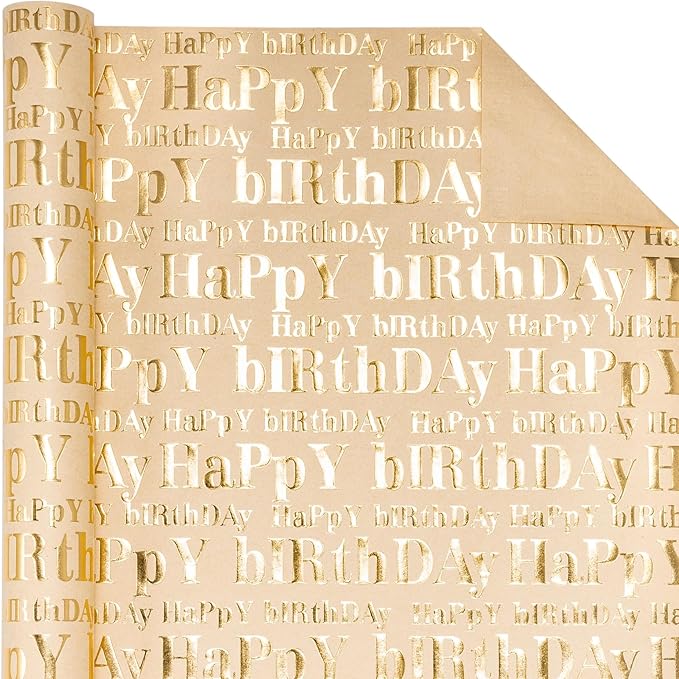 HaPpY bIRthDAy HaPpY
HaPpY
HaPpY bIRthDAy
bIRthDAy
HaPpY bIRthDAy HaPpY bIRthDAy
HaPpY bIRthDAy
bIRthDAy HaPpY bIRthDAy HaPpY
bIRthDAy HaPpY
HaPpY bIRthDAy HaPpY bIRthDAy
HaPpY bIRthDAy
bIRthDAy HaPpY bIRthDAy HaPpY
bIRthDAy HaPpY
HaPpY bIRthDAy HaPpY bIRthDAy
HaPpY bIRthDAy